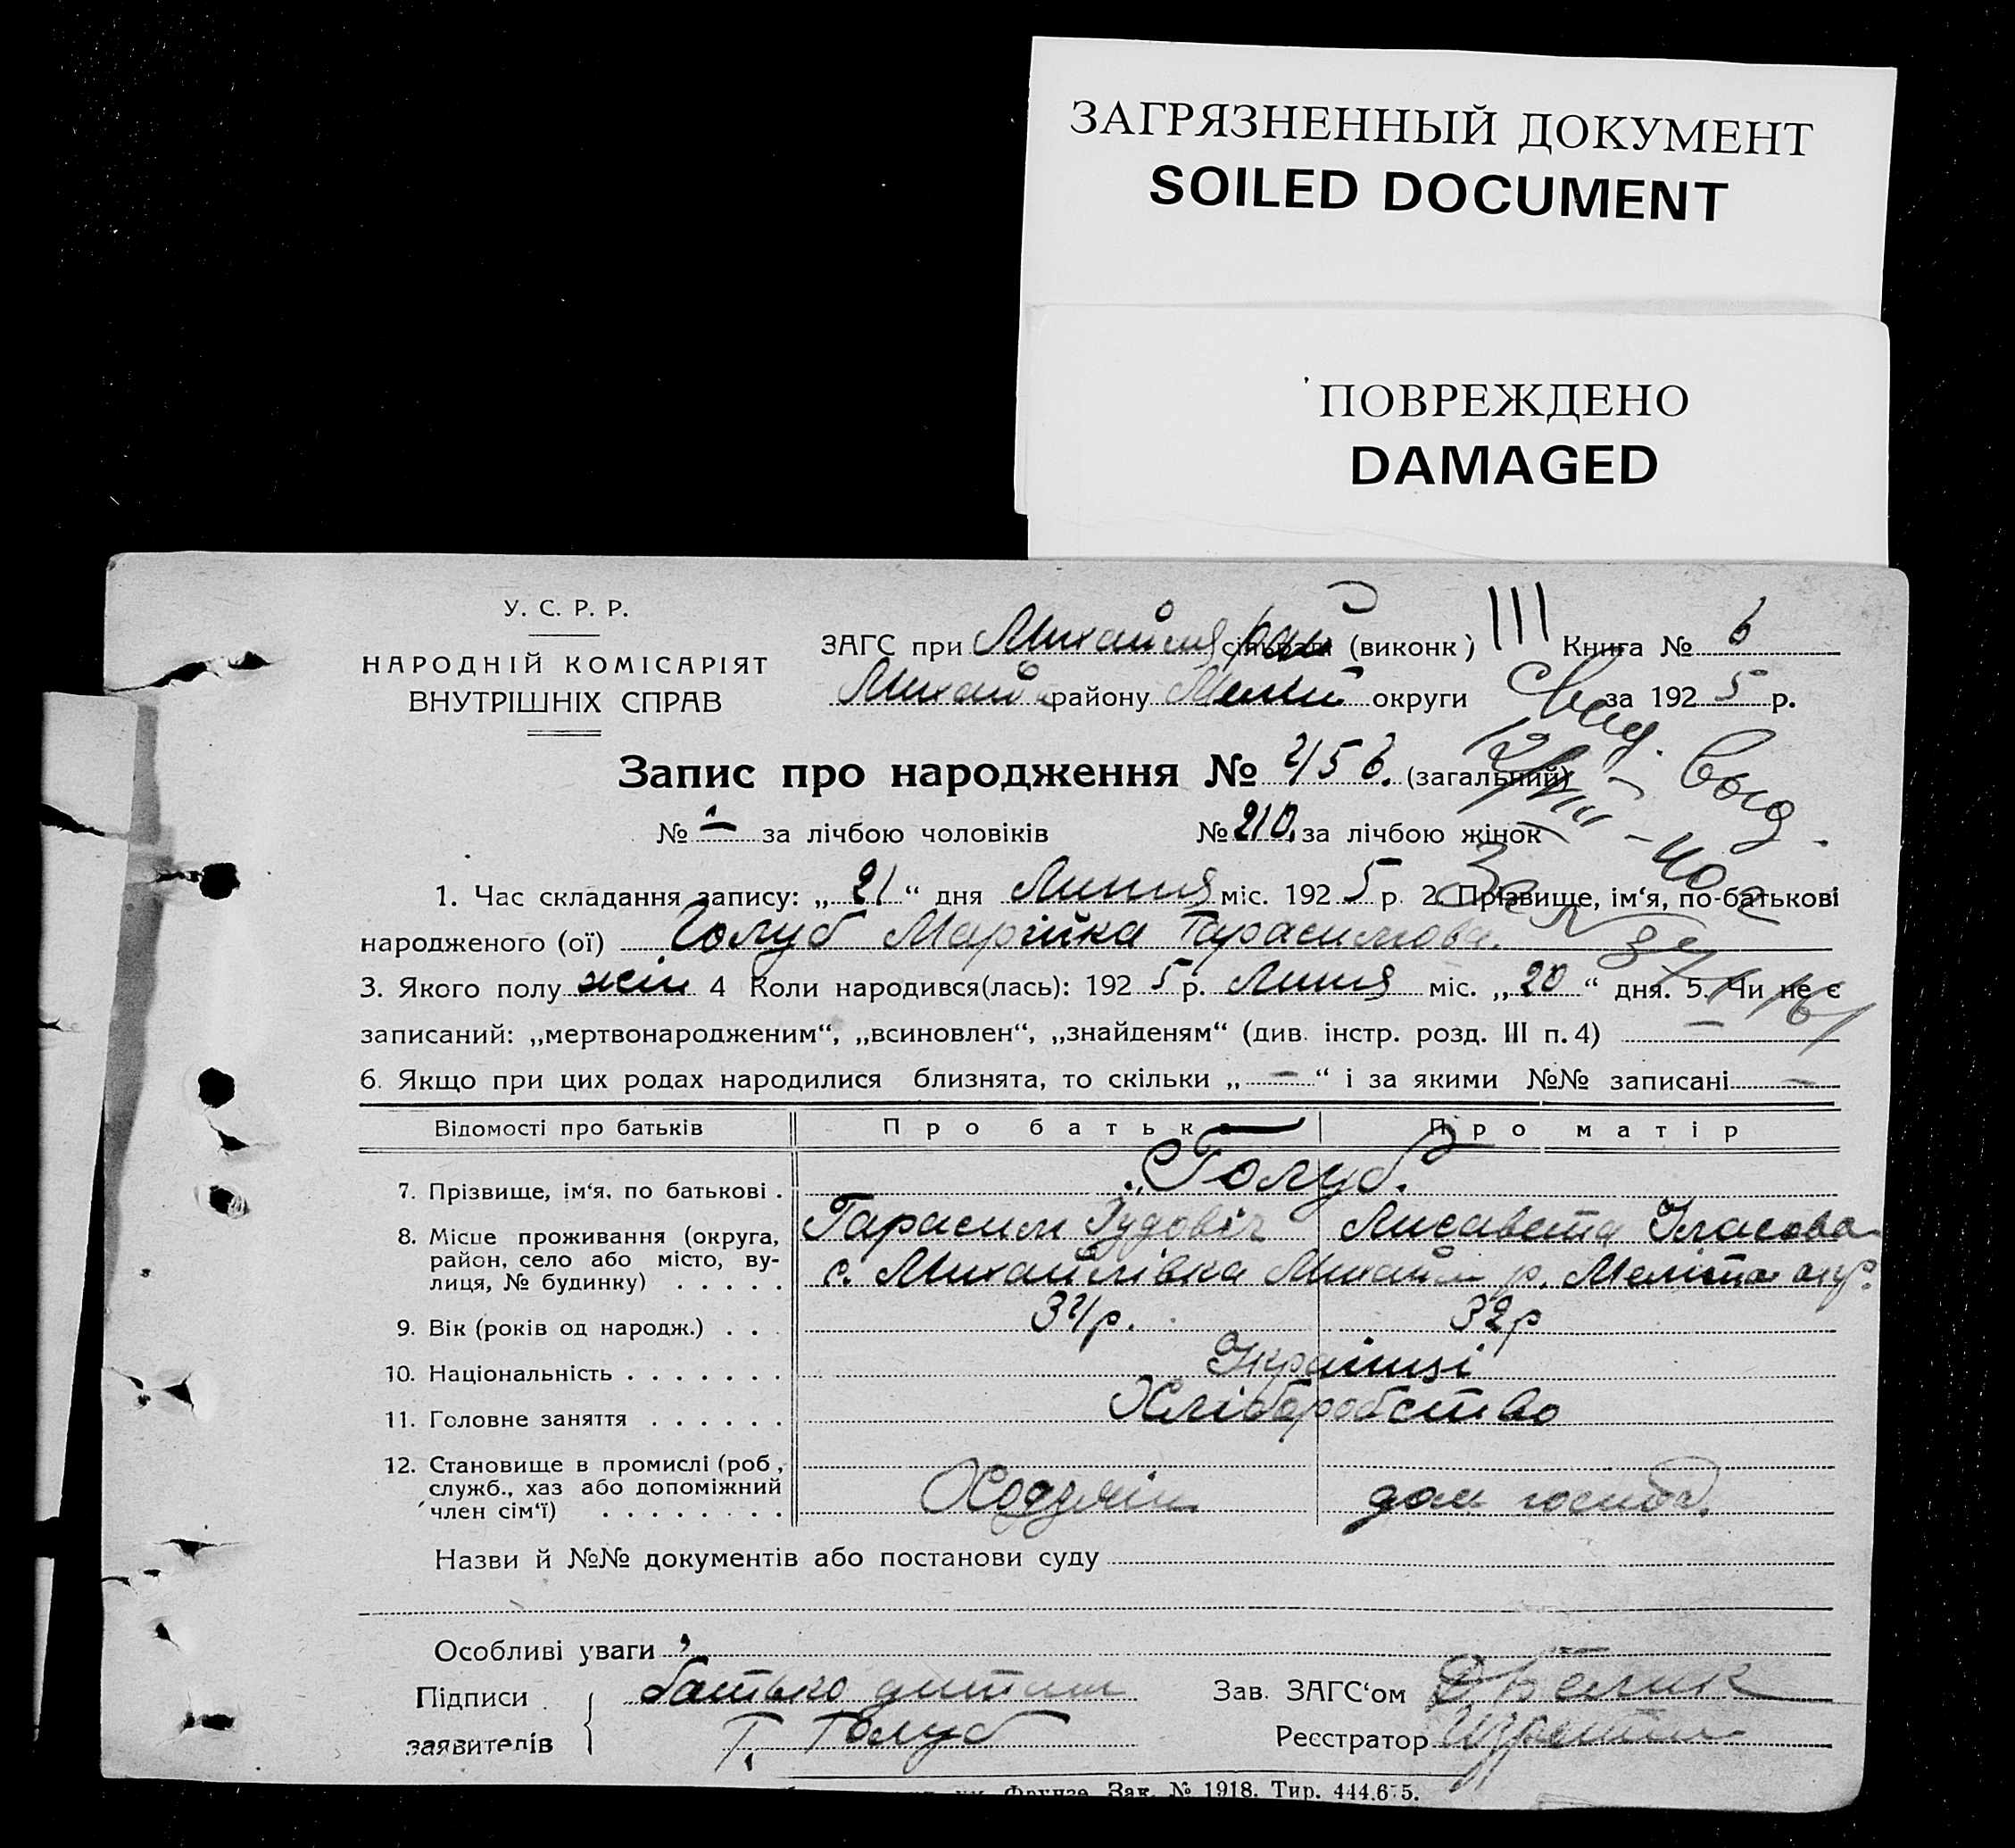 ЗАГРЯЗНЕННЫЙ ДОКУМЕНТ
SOILED DOCUMENT
ПОВРЕЖДЕНО
DAMAGED
У. С. Р. Р.
НАРОДНІЙ КОМІСАРІЯТ
ВНУТРІШНІХ СПРАВ
ЗАГС при Михайл рай (виконк) III Книга № 6
Михай району Меліт округи за 1925 р.
Свид. выд.
12/VIII - 40 г
Запис про народження № 456. (загальний)
№ — за лічбою чоловіків № 210. за лічбою жінок
1. Час складання запису: „21“ дня Липня міс. 1925 р. 2. Прізвище, ім‘я, по-батькові
народженого (ої) Голуб Марійка Тарасимова.
3. Якого полу жін 4 Коли народився(лась): 1925 р. Липня міс. „20“ дня. 5. Чи не є
записаний: „мертвонародженим“, „всиновлен“, „знайденям“ (див. інстр. розд. III п. 4) —
6. Якщо при цих родах народилися близнята, то скільки „—“ і за якими №№ записані —
Відомості про батьків Про батька Про матір
7. Прізвище, ім‘я, по батькові . Голуб.
Гарасим Лисавета Уласова
8. Місце проживання (округа, район, село або місто, вулиця, № будинку) . . . . . с. Михайлівка Михайл р. Меліто окр.
9. Вік (років од народж.) . . . 34 р. 32 р
10. Національність . . . . . . . Українці
11. Головне заняття . . . . . . Хліборобство
12. Становище в промислі (роб., служб., хаз або допоміжний член сім‘ї) . . . . . . . . Хозяїн дом. господ.
Назви й №№ документів або постанови суду
Особливі уваги
Підписи заявителів батько дитини
Т. Голуб
Зав. ЗАГС‘ом
Реєстратор
Фрунзе. Зак. № 1918. Тир. 444.675.